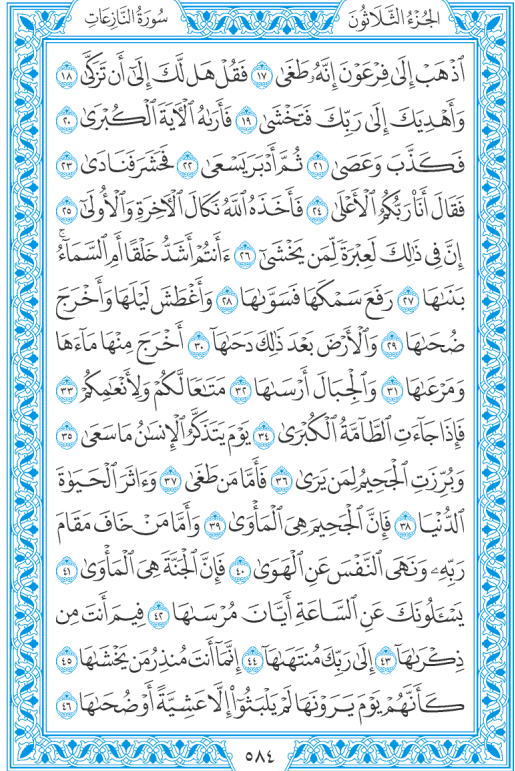 الجُزْءُ الثَّلَاثُونَ
سُورَةُ النَّازِعَاتِ
ٱذْهَبْ إِلَىٰ فِرْعَوْنَ إِنَّهُۥ طَغَىٰ ١٧ فَقُلْ هَل لَّكَ إِلَىٰٓ أَن تَزَكَّىٰ ١٨
وَأَهْدِيَكَ إِلَىٰ رَبِّكَ فَتَخْشَىٰ ١٩ فَأَرَىٰهُ ٱلْـَٔايَةَ ٱلْكُبْرَىٰ ٢٠
فَكَذَّبَ وَعَصَىٰ ٢١ ثُمَّ أَدْبَرَ يَسْعَىٰ ٢٢ فَحَشَرَ فَنَادَىٰ ٢٣
فَقَالَ أَنَا۠ رَبُّكُمُ ٱلْأَعْلَىٰ ٢٤ فَأَخَذَهُ ٱللَّهُ نَكَالَ ٱلْـَٔاخِرَةِ وَٱلْأُولَىٰٓ ٢٥
إِنَّ فِى ذَٰلِكَ لَعِبْرَةً لِّمَن يَخْشَىٰٓ ٢٦ ءَأَنتُمْ أَشَدُّ خَلْقًا أَمِ ٱلسَّمَآءُ ۚ
بَنَىٰهَا ٢٧ رَفَعَ سَمْكَهَا فَسَوَّىٰهَا ٢٨ وَأَغْطَشَ لَيْلَهَا وَأَخْرَجَ
ضُحَىٰهَا ٢٩ وَٱلْأَرْضَ بَعْدَ ذَٰلِكَ دَحَىٰهَآ ٣٠ أَخْرَجَ مِنْهَا مَآءَهَا
وَمَرْعَىٰهَا ٣١ وَٱلْجِبَالَ أَرْسَىٰهَا ٣٢ مَتَـٰعًا لَّكُمْ وَلِأَنْعَـٰمِكُمْ ٣٣
فَإِذَا جَآءَتِ ٱلطَّآمَّةُ ٱلْكُبْرَىٰ ٣٤ يَوْمَ يَتَذَكَّرُ ٱلْإِنسَـٰنُ مَا سَعَىٰ ٣٥
وَبُرِّزَتِ ٱلْجَحِيمُ لِمَن يَرَىٰ ٣٦ فَأَمَّا مَن طَغَىٰ ٣٧ وَءَاثَرَ ٱلْحَيَوٰةَ
ٱلدُّنْيَا ٣٨ فَإِنَّ ٱلْجَحِيمَ هِىَ ٱلْمَأْوَىٰ ٣٩ وَأَمَّا مَنْ خَافَ مَقَامَ
رَبِّهِۦ وَنَهَى ٱلنَّفْسَ عَنِ ٱلْهَوَىٰ ٤٠ فَإِنَّ ٱلْجَنَّةَ هِىَ ٱلْمَأْوَىٰ ٤١
يَسْـَٔلُونَكَ عَنِ ٱلسَّاعَةِ أَيَّانَ مُرْسَىٰهَا ٤٢ فِيمَ أَنتَ مِن
ذِكْرَىٰهَآ ٤٣ إِلَىٰ رَبِّكَ مُنتَهَىٰهَآ ٤٤ إِنَّمَآ أَنتَ مُنذِرُ مَن يَخْشَىٰهَا ٤٥
كَأَنَّهُمْ يَوْمَ يَرَوْنَهَا لَمْ يَلْبَثُوٓا۟ إِلَّا عَشِيَّةً أَوْ ضُحَىٰهَا ٤٦
٥٨٤